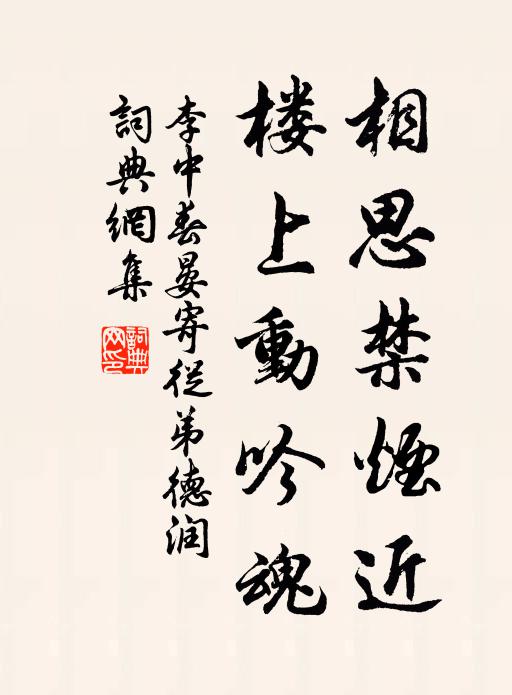 相思禁煙近
楼上動吟魂
李中春晏寄從弟德润
詞典網集
詞典网印